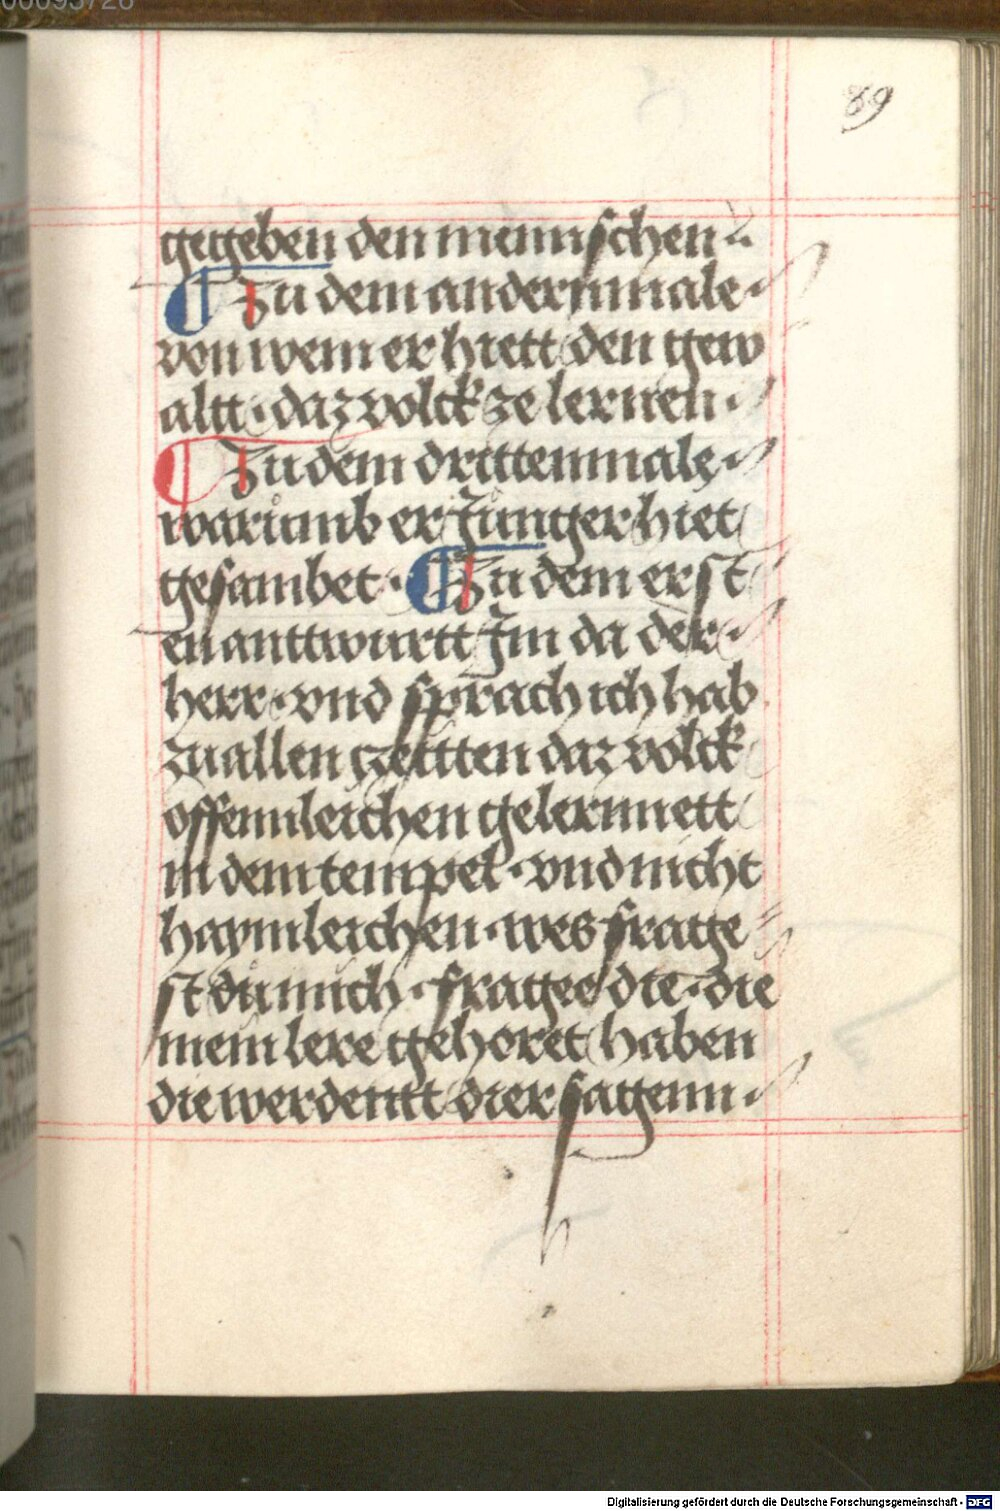 00095726
89
gegeben den mennschen
¶ Zu dem andernmale
von wem er hiett den gew
altt · daz volck ze lernen ·
¶ Zu dem drittenmale
warumb er Junger hiet
gesambet · ¶ Zu dem erst
en anttwurtt Jm da der
herr · vnd sprach ich hab
zu allen czeittten daz volck
offennleichen gelernnett
in dem tempel · vnd nicht
haymleichen · wes frage
st du mich · frage die · die
mein lere gehoret haben
die werdentt dier sagenn ·
Digitalisierung gefördert durch die Deutsche Forschungsgemeinschaft - DFG